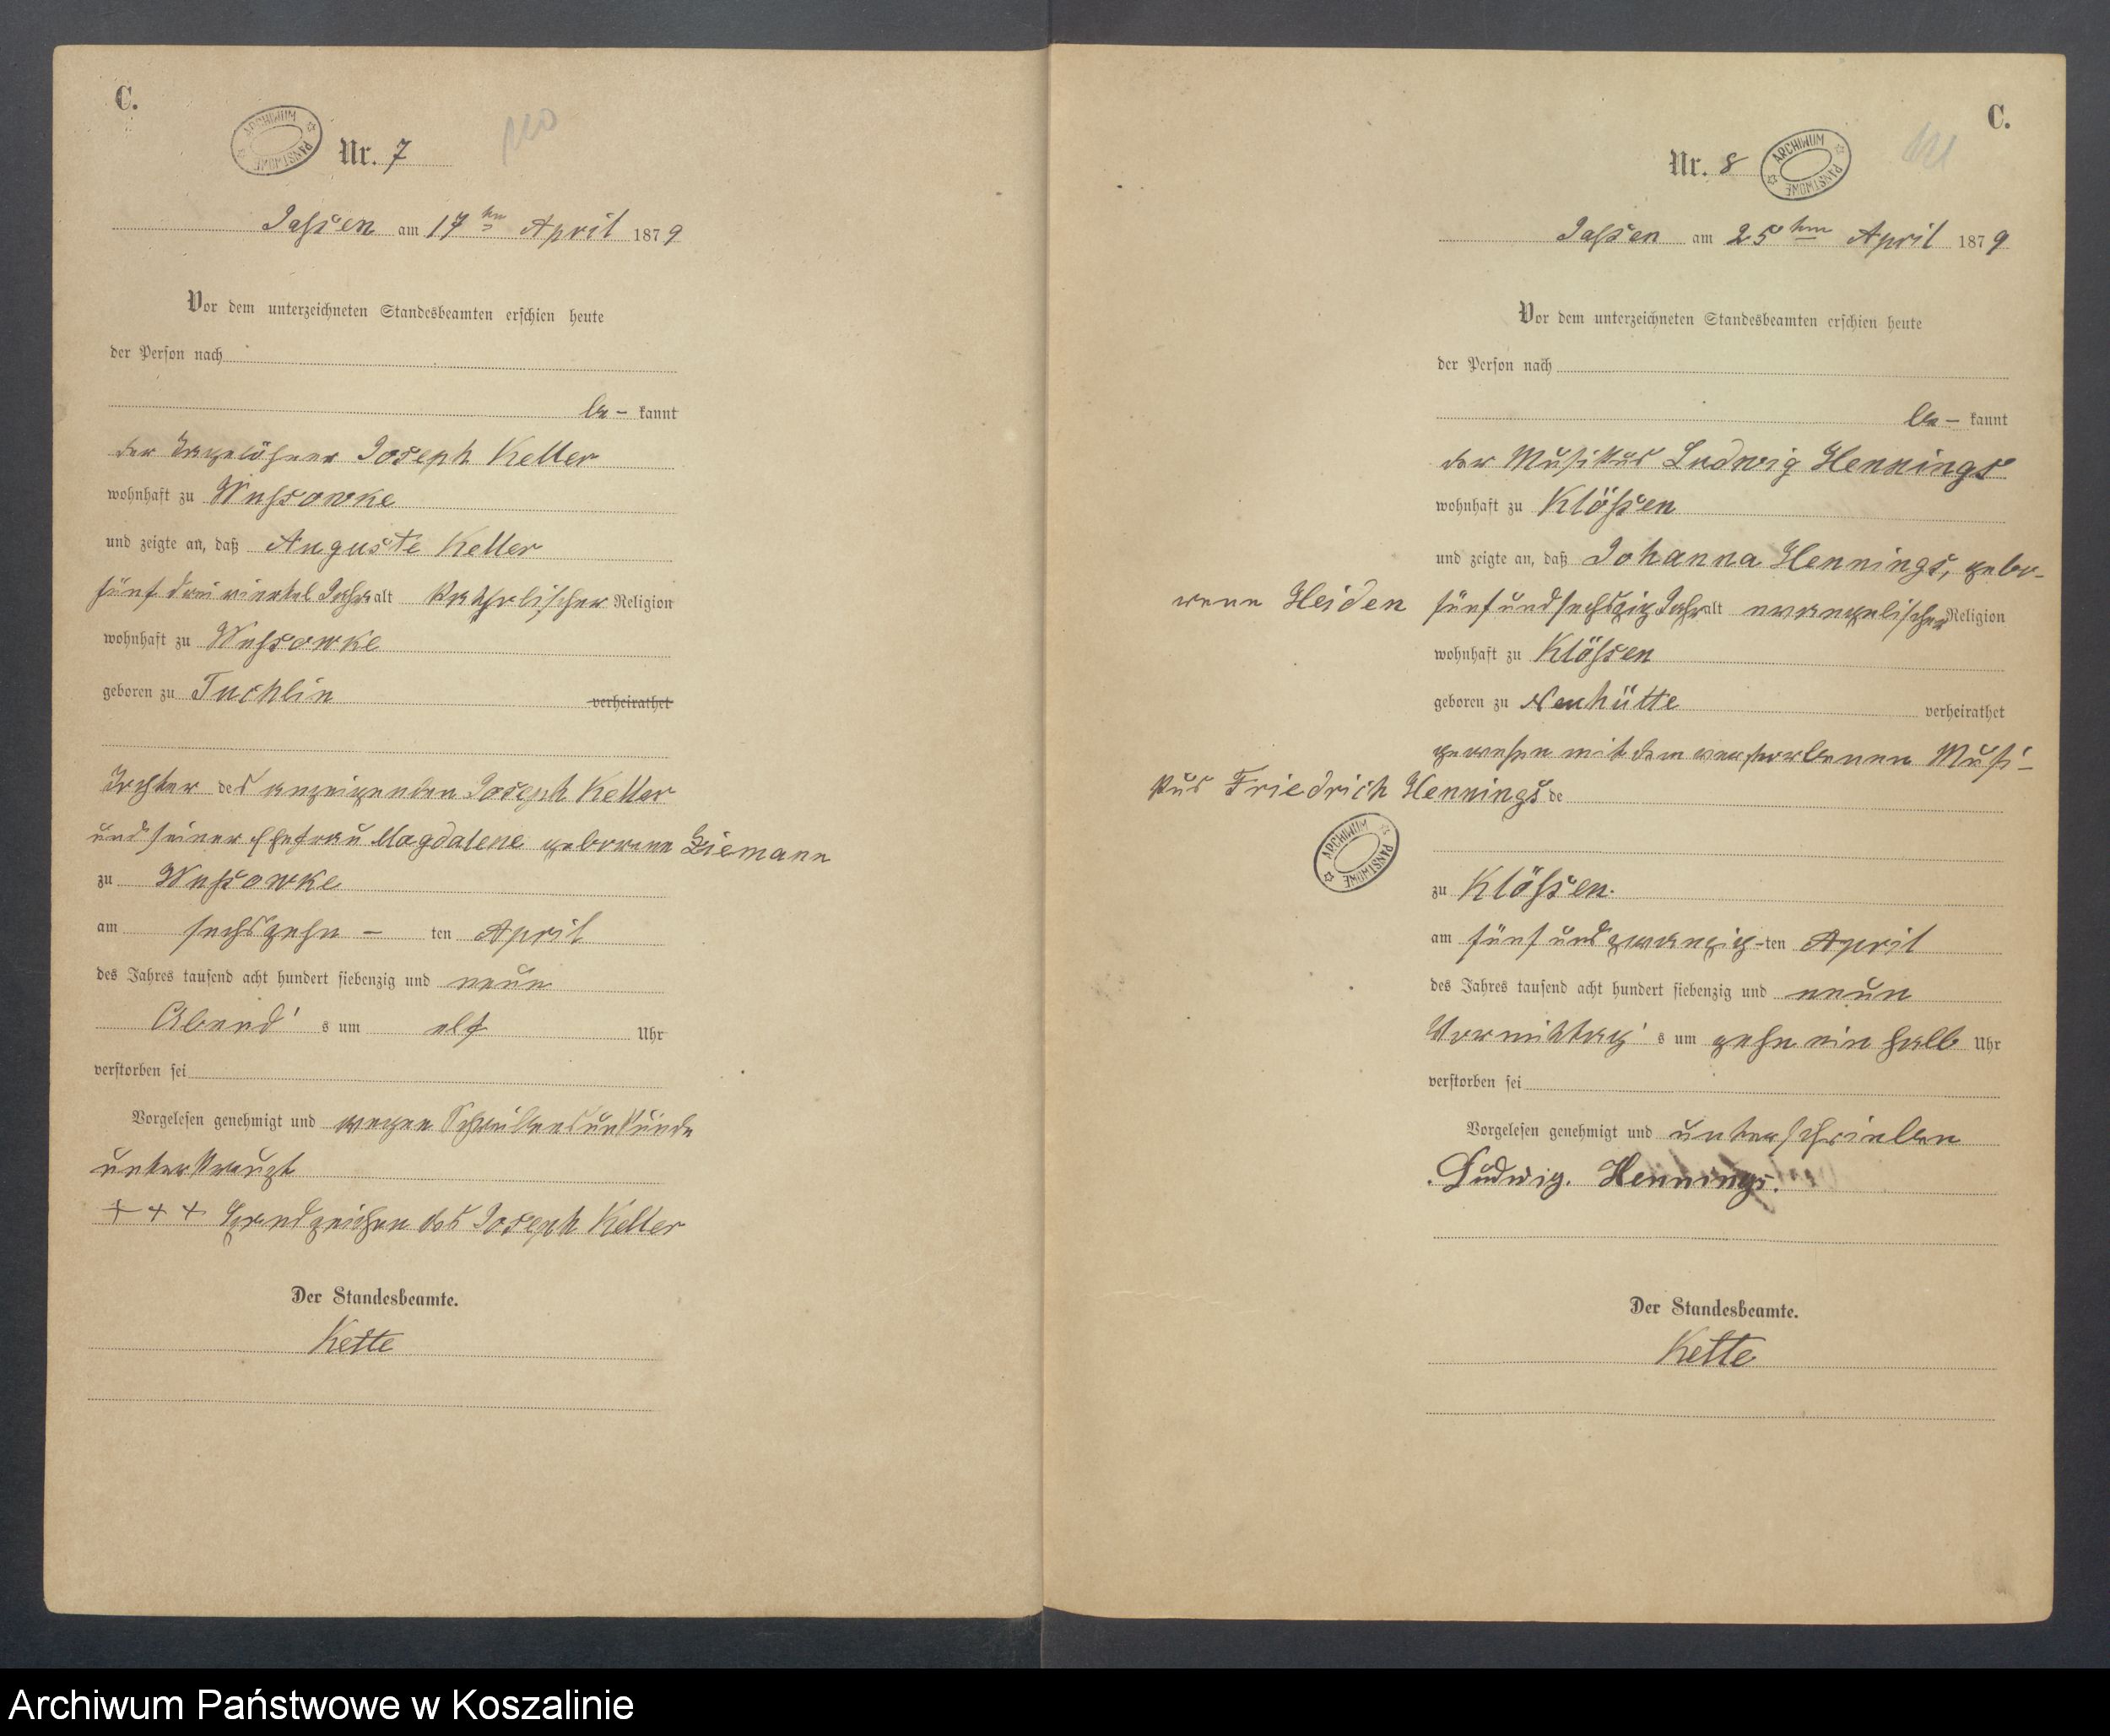 C.
ARCHIWUM PAŃSTWOWE
Nr. 7
110
Jassen am 17ten April 1879
Vor dem unterzeichneten Standesbeamten erschien heute
der Person nach
be- kannt
der Tagelöhner Joseph Keller
wohnhaft zu Wussowke
und zeigte an, daß Auguste Keller
fünf drei viertel Jahr alt katholischer Religion
wohnhaft zu Wussowke
geboren zu Tuchlin verheirathet
Tochter des anzeigenden Joseph Keller
und seiner Ehefrau Magdalene geborene Ziemann
zu Wussowke
am sechszehn - ten April
des Jahres tausend acht hundert siebenzig und neun
Abend's um elf Uhr
verstorben sei
Vorgelesen genehmigt und wegen Schreibensunkunde
unterkreuzt
+ + + Handzeichen des Joseph Keller
Der Standesbeamte.
Kette
C.
Nr. 8
ARCHIWUM PAŃSTWOWE
Jassen am 25ten April 1879
Vor dem unterzeichneten Standesbeamten erschien heute
der Person nach
be- kannt
der Musikus Ludwig Hennings
wohnhaft zu Klössen
und zeigte an, daß Johanna Hennings, gebo-
rene Heiden fünf und sechszig Jahr alt evangelischer Religion
wohnhaft zu Klössen
geboren zu Neuhütte verheirathet
gewesen mit dem verstorbenen Musi-
kus Friedrich Hennings de
ARCHIWUM PAŃSTWOWE
zu Klössen.
am fünf und zwanzig-ten April
des Jahres tausend acht hundert siebenzig und neun
Vormittag's um zehn ein halb Uhr
verstorben sei
Vorgelesen genehmigt und unterschrieben
Ludwig. Hennings.
Der Standesbeamte.
Kette
Archiwum Państwowe w Koszalinie